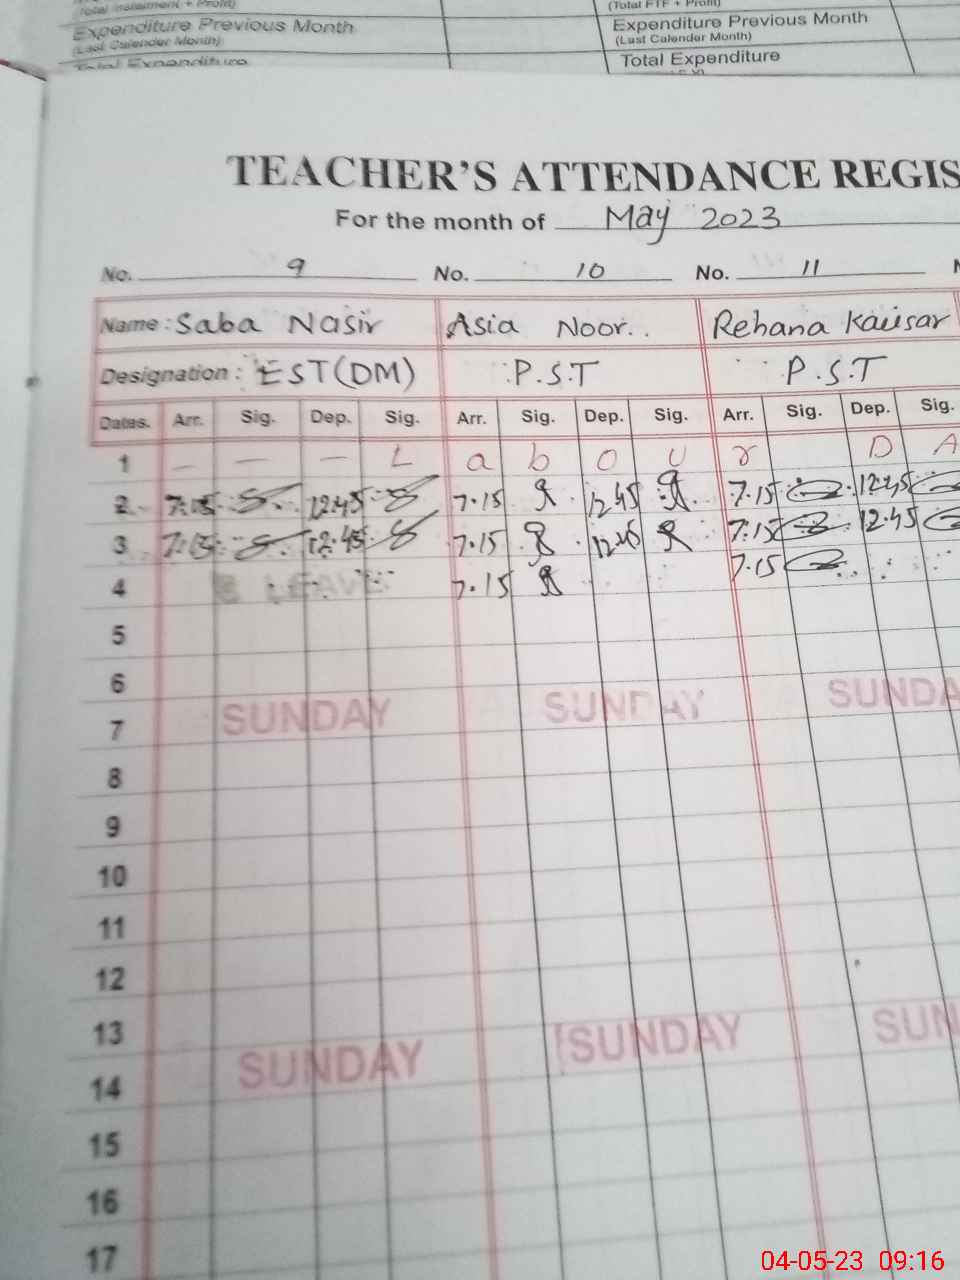 (Total Instalment + Profit)
(Total FTF + Profit)
Expenditure Previous Month
Expenditure Previous Month
(Last Calender Month)
(Last Calender Month)
Total Expenditure
Total Expenditure
TEACHER'S ATTENDANCE REGIS
For the month of May 2023
No. 9 No. 10 No. 11
Name: Saba Nasir Asia Noor.. Rehana Kausar
Designation: EST(DM) P.S.T P.S.T
Dates. Arr. Sig. Dep. Sig. Arr. Sig. Dep. Sig. Arr. Sig. Dep. Sig.
1 — — — L a b o u r D A
2 7:15 12:45 7.15 12.45 7.15 12.45
3 7:15 12:45 7.15 12.45 7.15 12.45
4 LEAVE 7.15 7.15
5
6
7 SUNDAY SUNDAY SUNDA
8
9
10
11
12
13
14 SUNDAY SUNDAY SUN
15
16
17
04-05-23 09:16